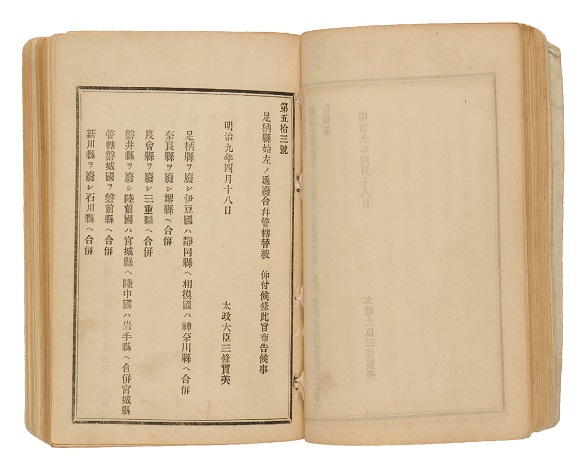 第五拾三號
足柄縣始左ノ通廢合并管轄替被 仰付候條此旨布告候事
明治九年四月十八日
太政大臣三條實美
足柄縣ヲ廢シ伊豆國ハ靜岡縣ヘ相摸國ハ神奈川縣ヘ合併
奈良縣ヲ廢シ堺縣ヘ合併
度會縣ヲ廢シ三重縣ヘ合併
磐井縣ヲ廢シ陸前國ハ宮城縣ヘ陸中國ハ岩手縣ヘ合併宮城縣
管轄磐城國ヲ磐前縣ヘ合併
新川縣ヲ廢シ石川縣ヘ合併